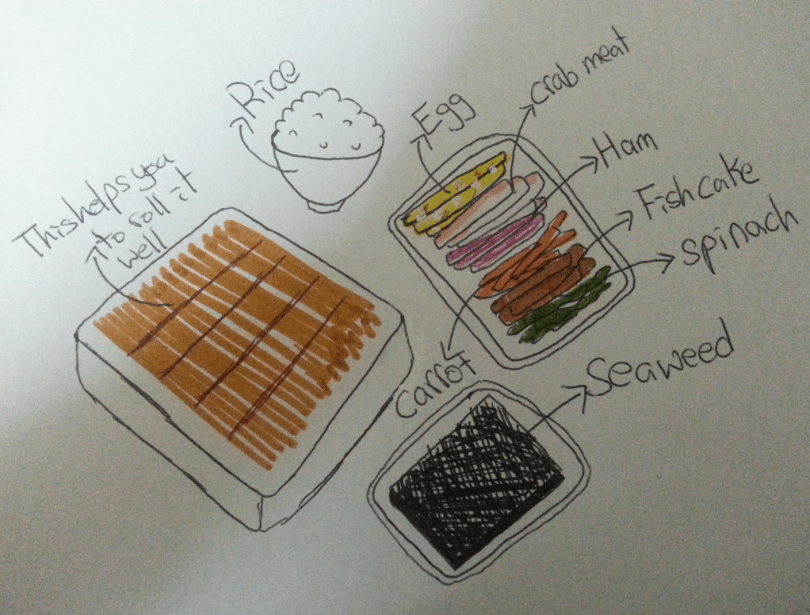 Rice
Egg
crab meat
Ham
Fish cake
spinach
This helps you
to roll it
well
carrot
Seaweed